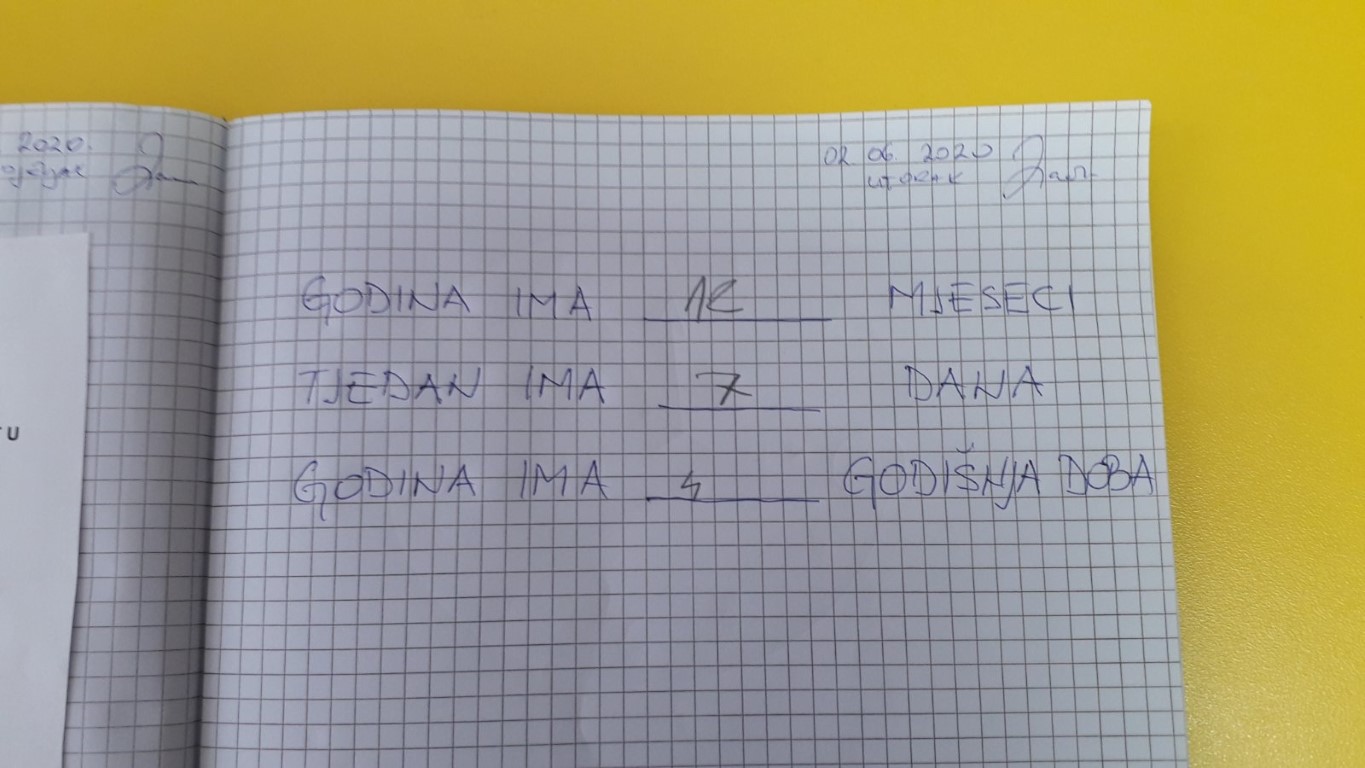 2020.
TU
02. 06. 2020
utorak
GODINA IMA 12 MJESECI
TJEDAN IMA 7 DANA
GODINA IMA 4 GODIŠNJA DOBA